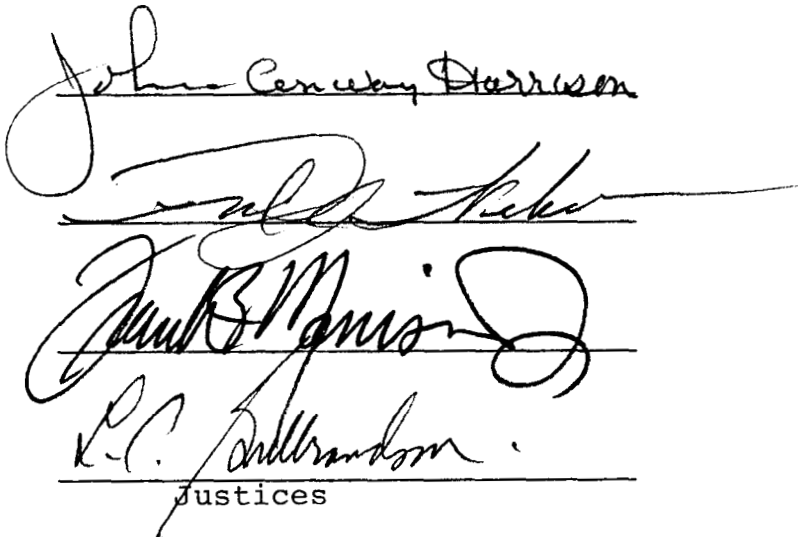 John Conway Harrison
Frank B Morrison Jr
L. C. Gulbrandson.
Justices